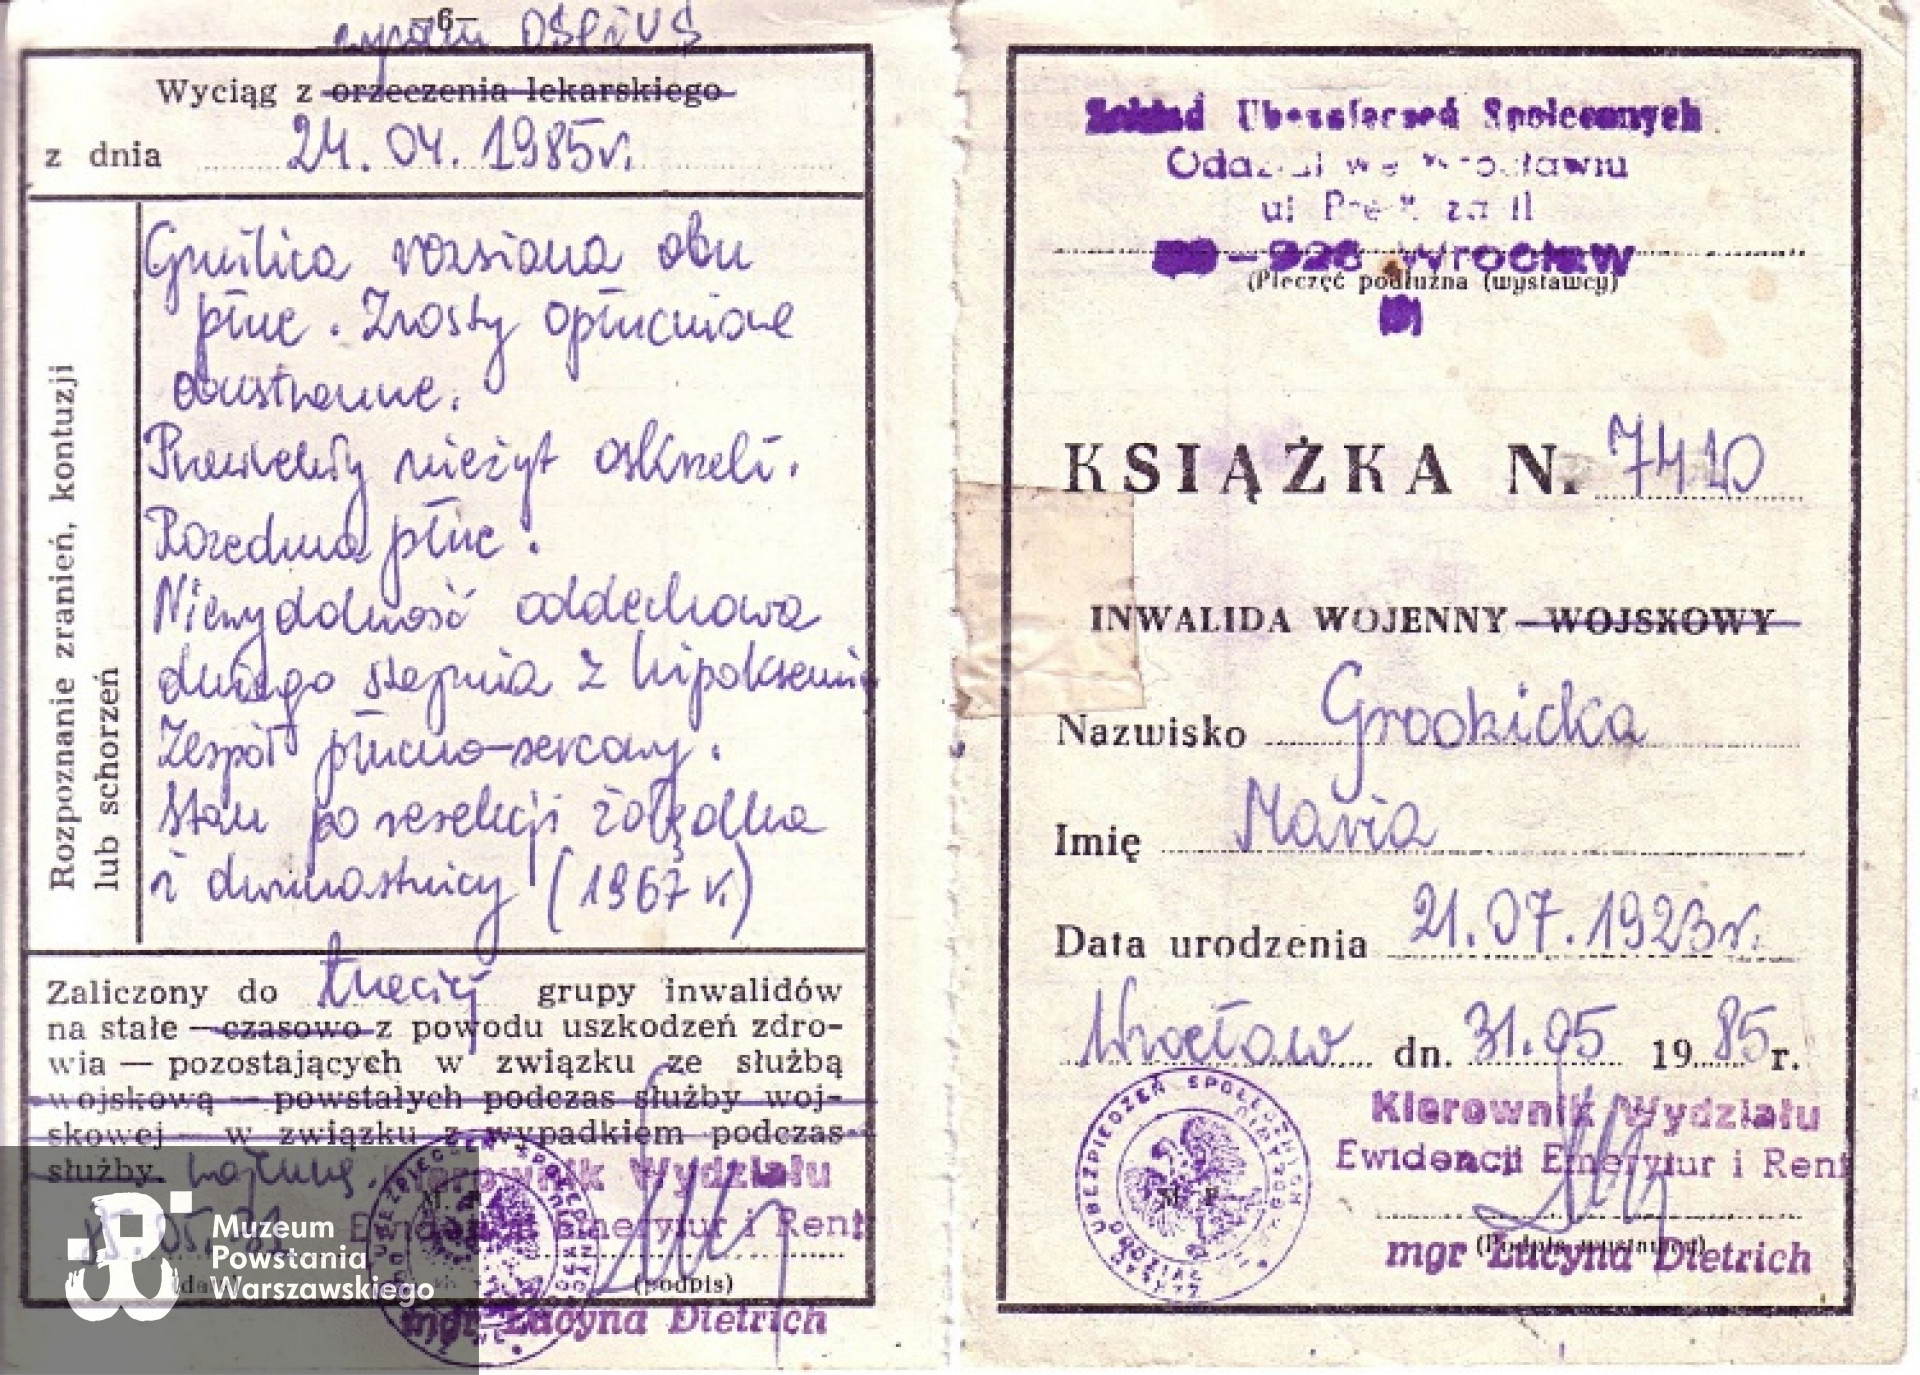 —6—
OSRiUS
Wyciąg z orzeczenia lekarskiego
z dnia 24. 04. 1985r.
Rozpoznanie zranień, kontuzji
lub schorzeń
Gruźlica rozsiana obu
płuc. Zrosty opłucnowe
obustronne.
Przewlekły nieżyt oskrzeli.
Rozedma płuc.
Niewydolność oddechowa
drugiego stopnia z hipoksemią
Zespół płucno-sercowy.
Stan po resekcji żołądka
i dwunastnicy (1967 r.)
Zaliczony do trzeciej grupy inwalidów
na stałe — czasowo z powodu uszkodzeń zdro-
wia — pozostających w związku ze służbą
wojskową — powstałych podczas służby woj-
skowej — w związku z wypadkiem podczas
służby. wojenną.
Kierownik Wydziału
Ewidencji Emerytur i Rent
(data) (podpis)
mgr Lucyna Dietrich
Muzeum
Powstania
Warszawskiego
Zakład Ubezpieczeń Społecznych
Oddział we Wrocławiu
ul
Wrocław
(Pieczęć podłużna (wystawcy)
KSIĄŻKA Nr 7410
INWALIDA WOJENNY — WOJSKOWY
Nazwisko Grodzicka
Imię Maria
Data urodzenia 21.07.1923r.
Wrocław dn. 31.05 1985r.
Kierownik Wydziału
Ewidencji Emerytur i Rent
M P
(Podpis wystawcy)
mgr Lucyna Dietrich
UBEZPIECZEŃ SPOŁECZNYCH
ODDZIAŁ